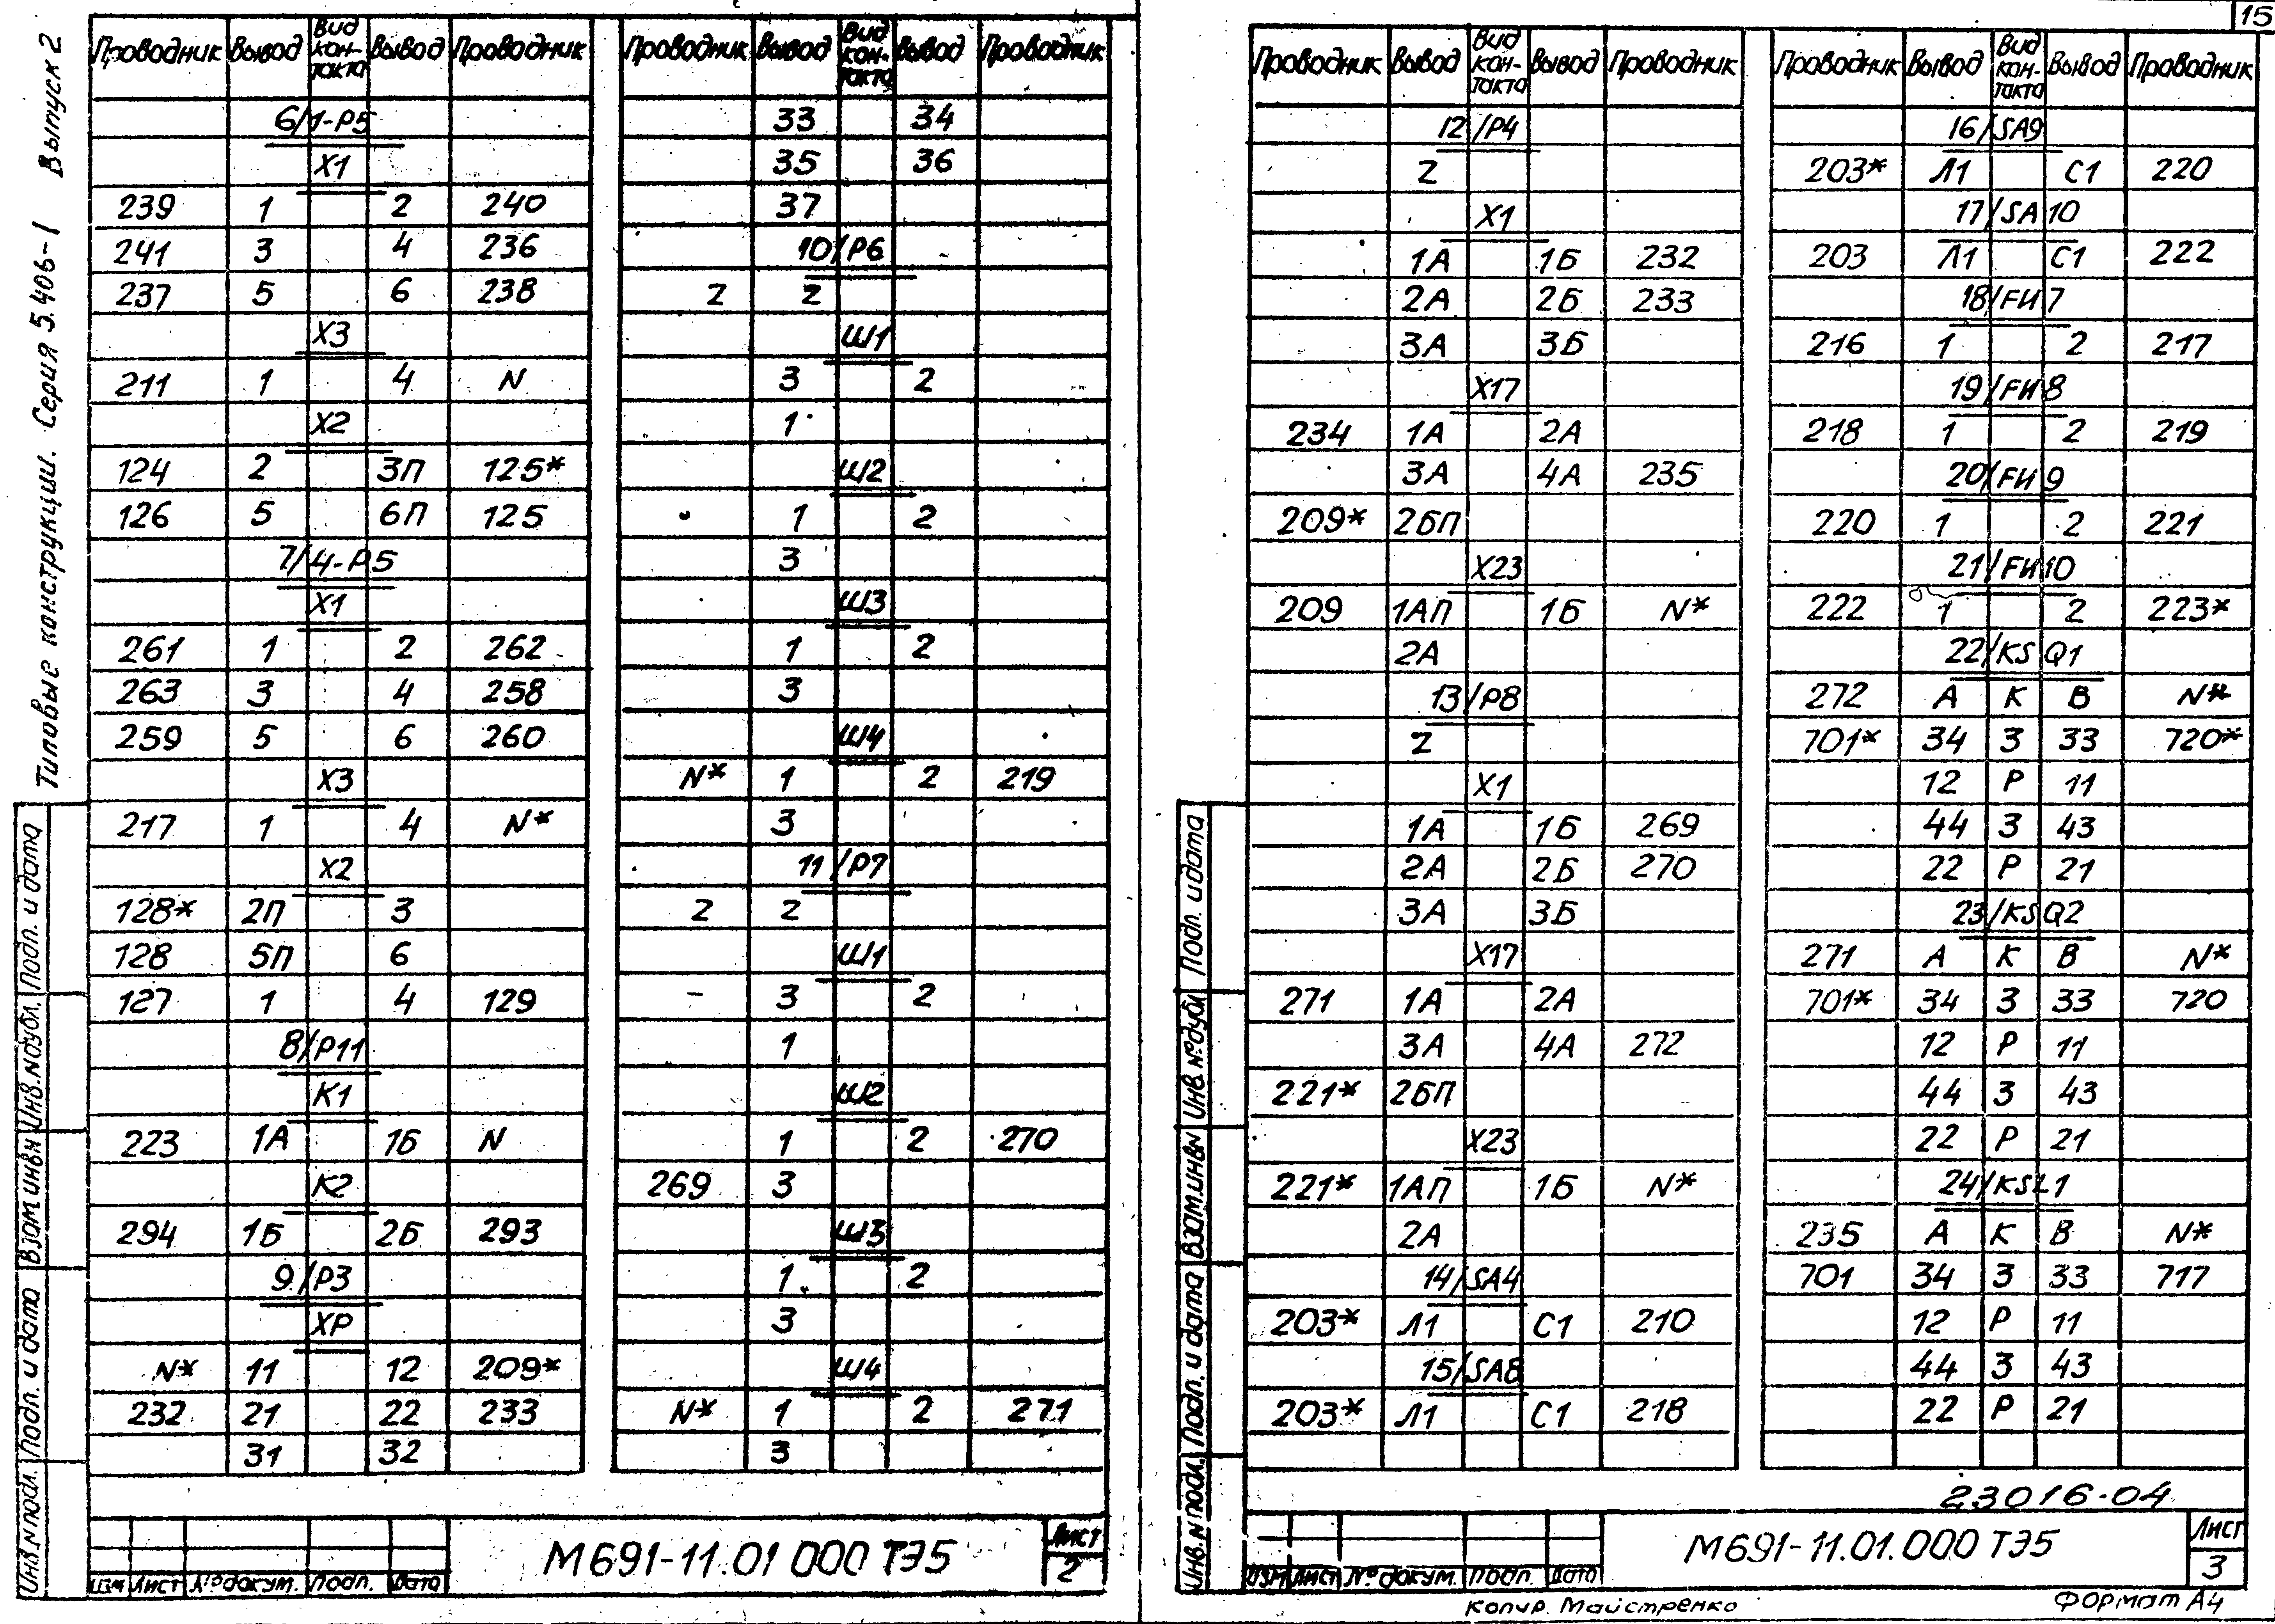 Типовые конструкции. Серия 5.406-1 Выпуск 2
Проводник Вывод Вид контакта Вывод Проводник
6/1-Р5
Х1
239 1 2 240
241 3 4 236
237 5 6 238
Х3
211 1 4 N
Х2
124 2 3П 125*
126 5 6П 125
7/4-Р5
Х1
261 1 2 262
263 3 4 258
259 5 6 260
Х3
217 1 4 N*
Х2
128* 2П 3
128 5П 6
127 1 4 129
8/Р11
К1
223 1А 1Б N
К2
294 1Б 2Б 293
9/Р3
ХР
N* 11 12 209*
232 21 22 233
31 32
Проводник Вывод Вид контакта Вывод Проводник
33 34
35 36
37
10/Р6
2 2
Ш1
3 2
1
Ш2
1 2
3
Ш3
1 2
3
Ш4
N* 1 2 219
3
11/Р7
2 2
Ш1
3 2
1
Ш2
1 2 270
269 3
Ш3
1 2
3
Ш4
N* 1 2 271
3
Инв.N подл. Подп. и дата Взам.инв.N Инв.N дубл. Подп. и дата
Изм Лист № докум. Подп. Дата
М691-11.01 000 ТЭ5
Лист
2
15
Проводник Вывод Вид кон-такта Вывод Проводник
12/Р4
2
Х1
1А 1Б 232
2А 2Б 233
3А 3Б
Х17
234 1А 2А
3А 4А 235
209* 2БП
Х23
209 1АП 1Б N*
2А
13/Р8
2
Х1
1А 1Б 269
2А 2Б 270
3А 3Б
Х17
271 1А 2А
3А 4А 272
221* 2БП
Х23
221* 1АП 1Б N*
2А
14/SA4
203* Л1 С1 210
15/SA8
203* Л1 С1 218
Проводник Вывод Вид кон-такта Вывод Проводник
16/SA9
203* Л1 С1 220
17/SA10
203 Л1 С1 222
18/FИ7
216 1 2 217
19/FИ8
218 1 2 219
20/FИ9
220 1 2 221
21/FИ10
222 1 2 223*
22/KSQ1
272 А К В N*
701* 34 З 33 720*
12 Р 11
44 З 43
22 Р 21
23/KSQ2
271 А К В N*
701* 34 З 33 720
12 Р 11
44 З 43
22 Р 21
24/KSL1
235 А К В N*
701 34 З 33 717
12 Р 11
44 З 43
22 Р 21
23016-04
Инв.N подл. Подп. и дата Взам.инв.N Инв.№ дубл. Подп. и дата
Изм Лист № докум. Подп. Дата
М691-11.01.000 ТЭ5
Лист
3
Копир. Майстренко
Формат А4